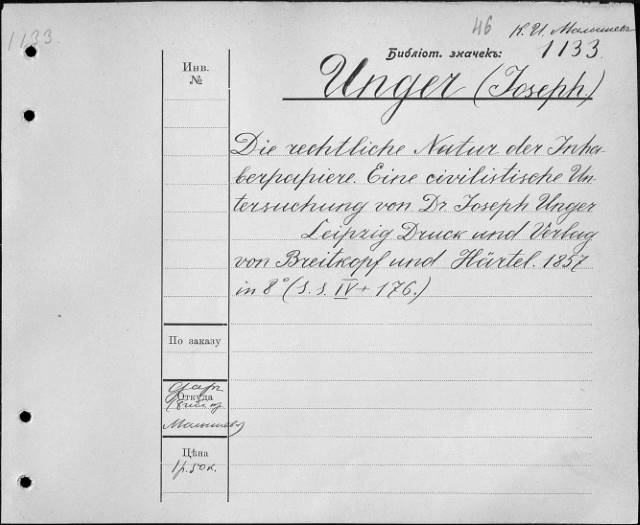 1133.
46 К. И. Малышев
Библіот. значекъ: 1133
Unger (Joseph.)
Инв.
№
Die rechtliche Natur der Inha-
berpapiere. Eine civilistische Un-
tersuchung von Dr. Joseph Unger
Leipzig Druck und Verlag
von Breitkopf und Härtel. 1857
in 8° (S. S. IV + 176.)
По заказу
Откуда
даръ
Малышева
Цѣна
1 р. 50 к.